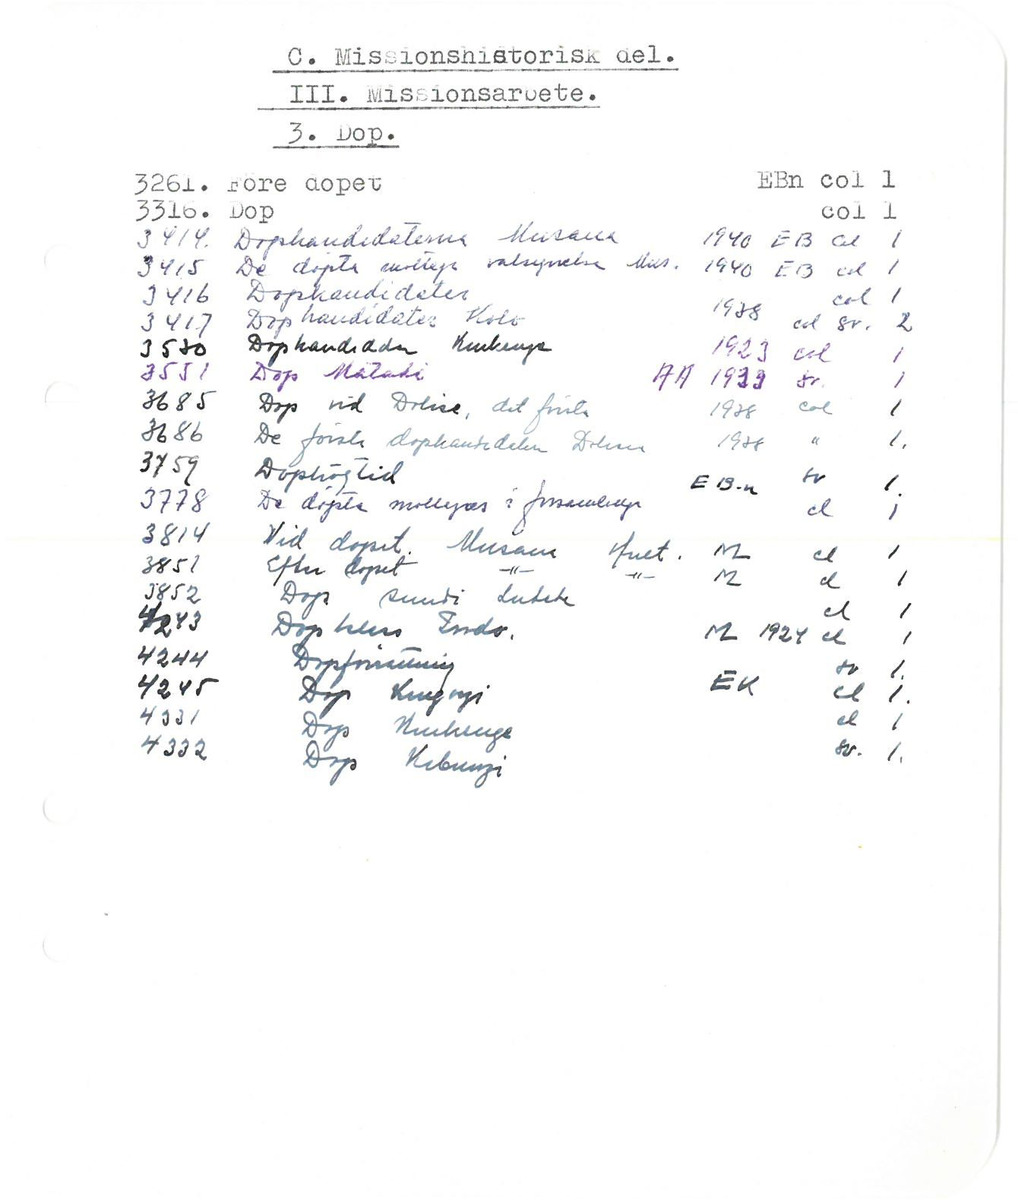 C. Missionshistorisk del.
III. Missionsarbete.
3. Dop.
3261. Före dopet EBn col 1
3316. Dop col 1
3414. Dopkandidaterna Musana 1940 EB col 1
3415 De döpta mottaga välsignelse Mus. 1940 EB col 1
3416 Dopkandidater col 1
3417 Dopkandidater Kolo 1938 col sv. 2
3550 Dopkandidater Kinkenge 1923 col 1
3551 Dop Matadi AA 1939 sv. 1
3685 Dop vid Dolisie, det första 1938 col 1
3686 De första dopkandidaten Dolisie 1938 " 1.
3759 Dophögtid EB-n sv 1.
3778 De döpta mottages i församlinge cl 1
3814 Vid dopet. Musana M cl 1
3851 Efter dopet -"- -"- M cl 1
3852 Dop Sundi Lutete cl 1
4243 Dopklass M 1924 cl 1
4244 Dopförrättning sv 1.
4245 Dop Kingoyi EK cl 1.
4331 Dop Kinkenge cl 1
4332 Dop Kibunzi sv. 1.